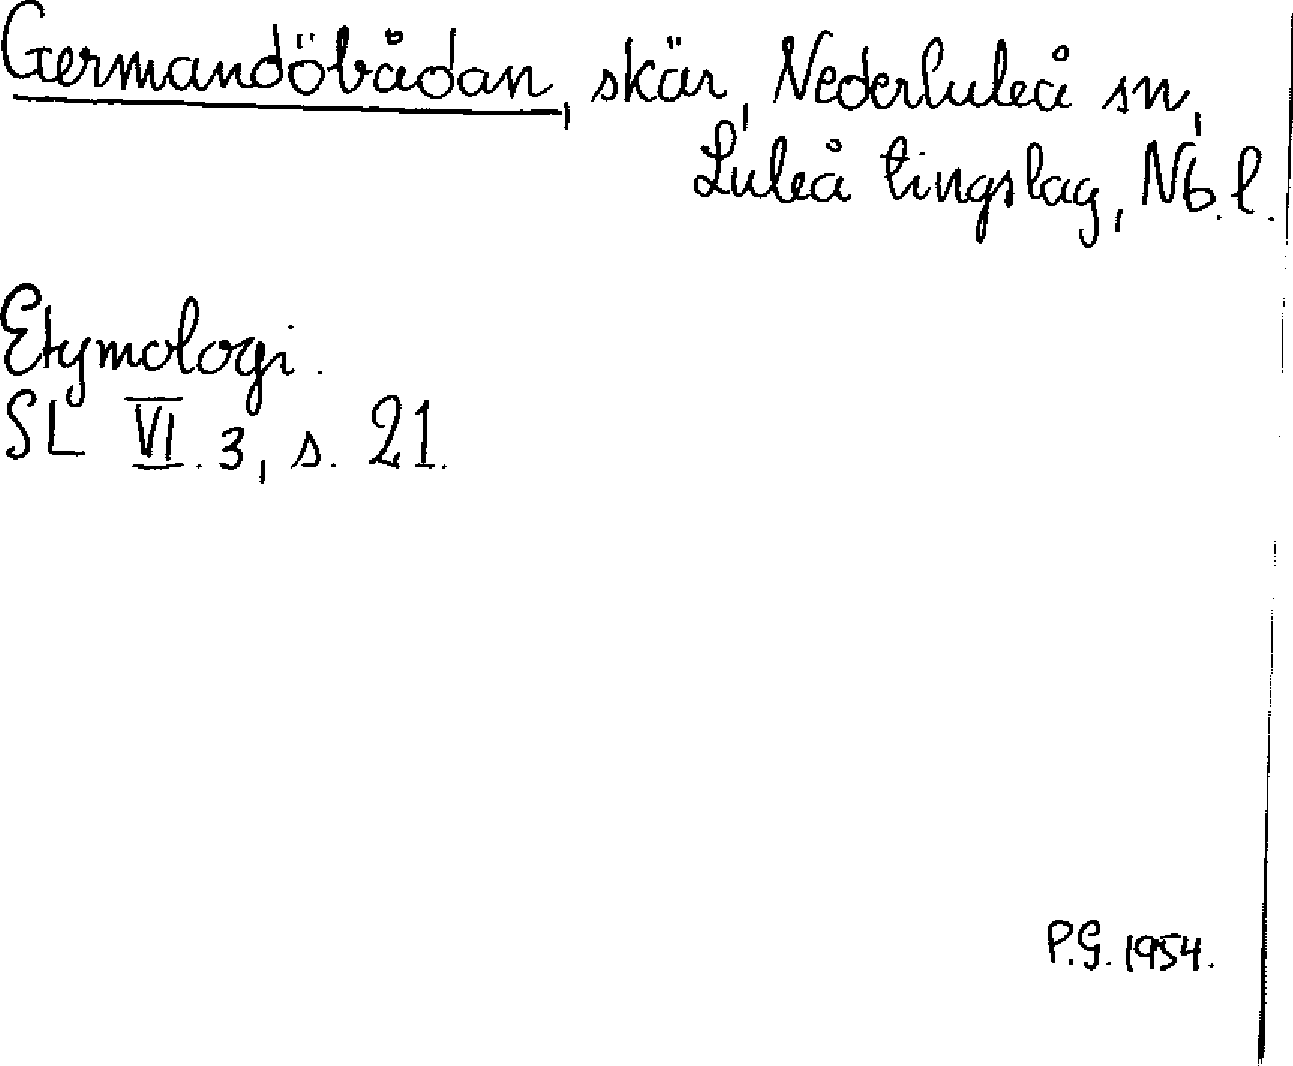 Germandöbådan, skär, Nederluleå sn,
Luleå tingslag, Nb.l.
Etymologi.
SL VI.3, s. 21.
P.G. 1954.